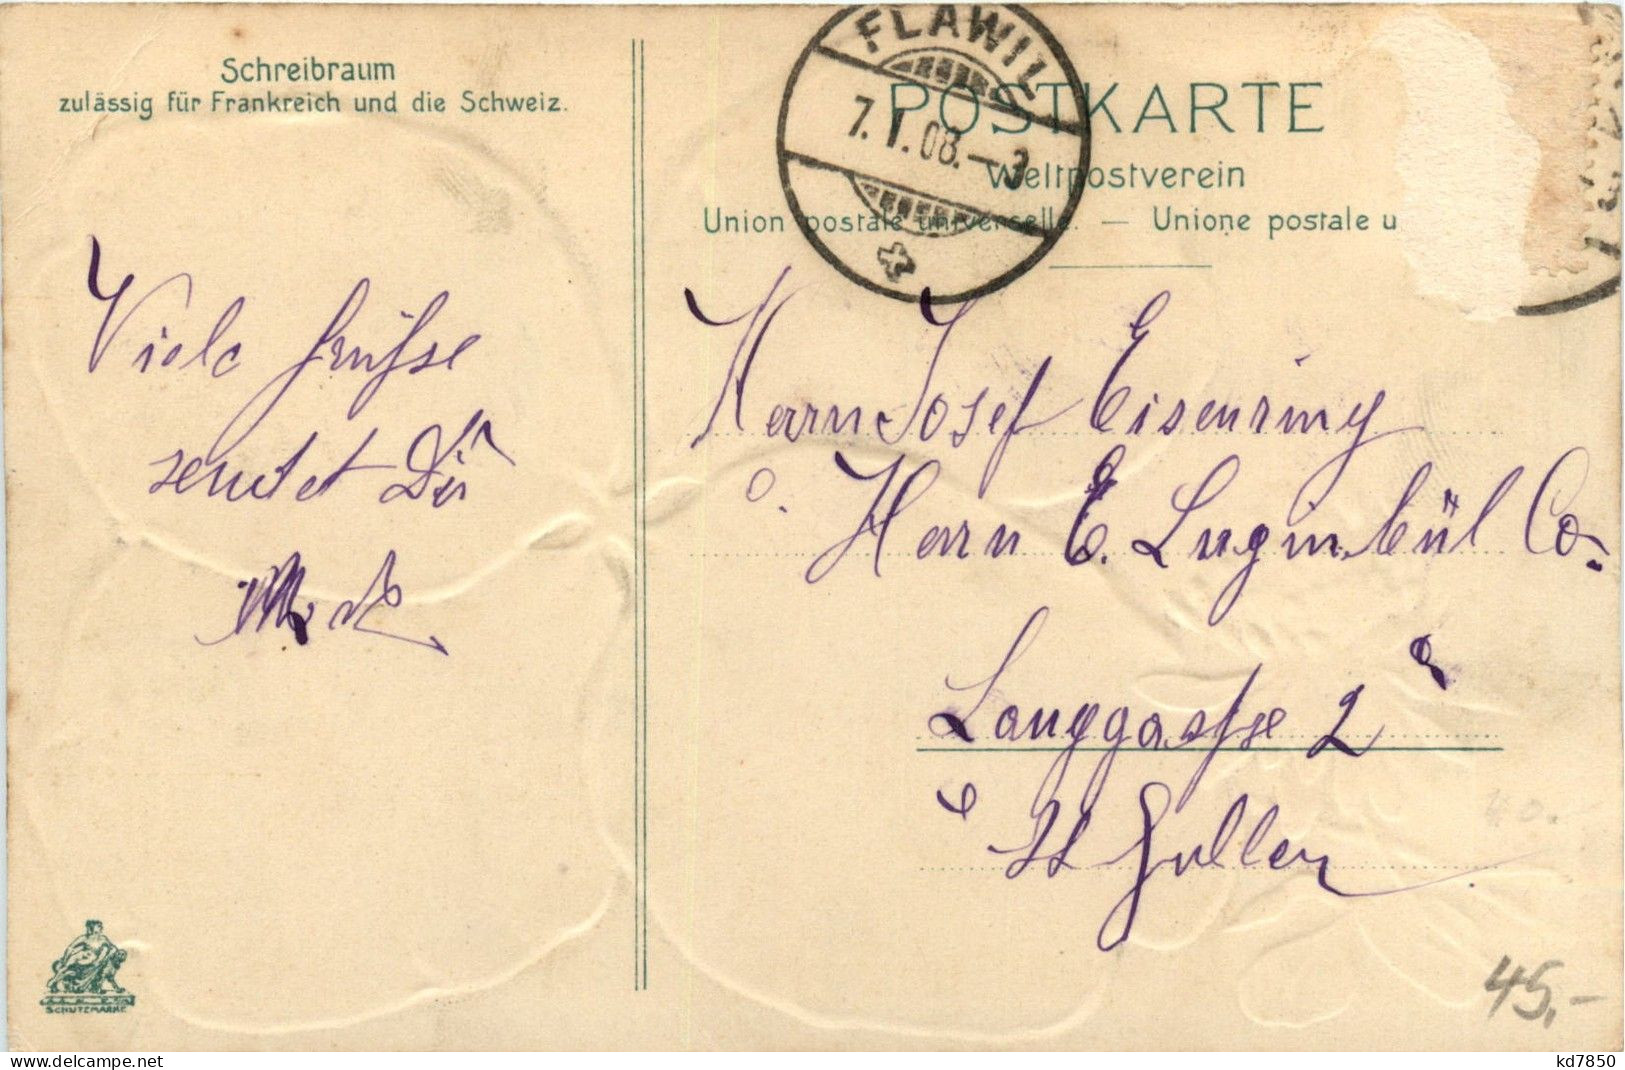 Schreibraum
zulässig für Frankreich und die Schweiz.
FLAWIL
7. I. 08. – 3
POSTKARTE
Weltpostverein
Union postale universelle. — Unione postale u
Viele Grüsse
sendet Dir
Herrn Josef Eisenring
Herrn E. Luginbül Co.
Langgasse 2
St Gallen
40.
45,-
SCHUTZMARKE
www.delcampe.net
kd7850